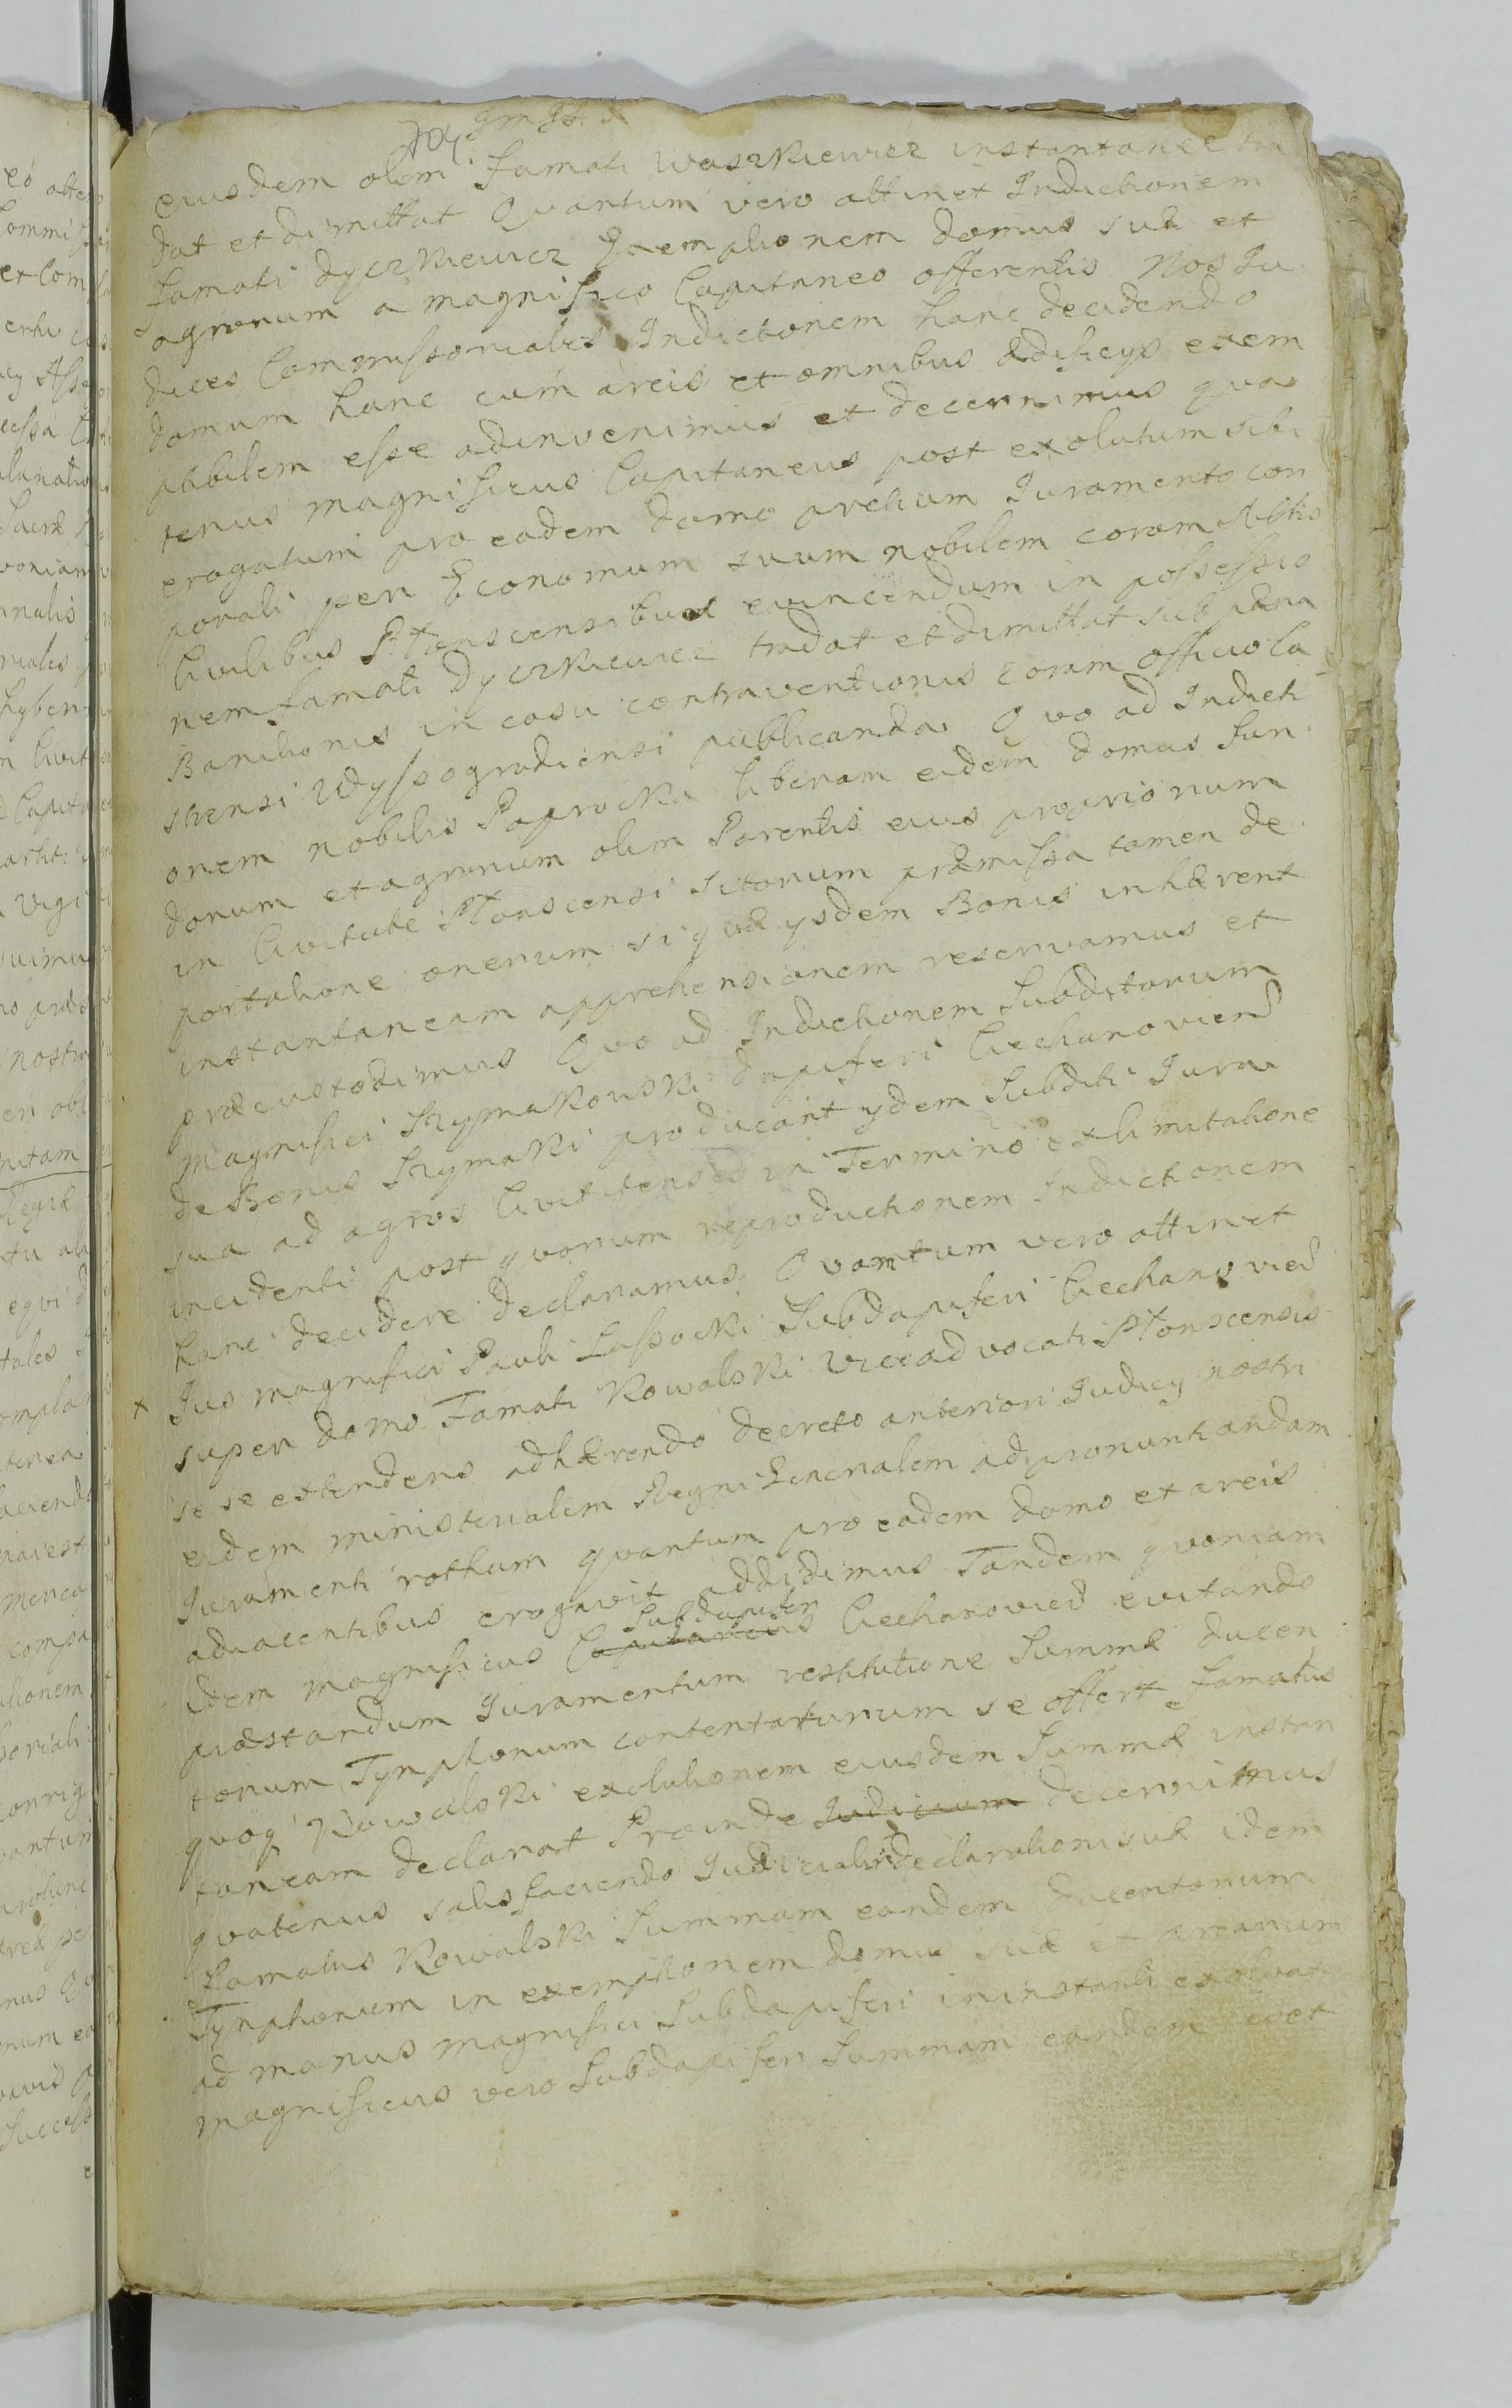 eiusdem olim Famati Waszkiewicz instantanee tra
dat et dimittat Quantum vero attinet Indictionem
Famati Dyczkiewicz Exemptionem domus suæ et
agrorum a Magnifico Capitaneo offerentis Nos Iu
dices Commissoriales Indictionem hanc decidendo
domum hanc cum areis et omnibus ædificijs exem
ptibilem esse adinvenimus et decernimus qua
tenus Magnificus Capitaneus post exolutum sibi
erogatum pro eadem domo pretium Iuramento cor
porali per Œconomum suum nobilem coram Actis
Civilibus Płonscensibus evincendum in possessio
nem Famati Dyczkiewicz tradat et dimittat sub pæna
Banitionis in casu contraventionis coram officio Ca
strensi Wyssogrodiensi publicanda Quo ad Indicti
onem nobilis Paprocka liberam eidem domus fun
dorum et agrorum olim Parentis eius propriorum
in Civitate Płonscensi sitorum præmissa tamen de
portatione onerum si quæ ijsdem Bonis inhærent
instantaneam apprehensionem reservamus et
præcustodimus Quo ad Indictionem Subditorum
Magnifici Szymakowski Dapiferi Ciechanoviens
de Bonis Szymaki producant ijdem Subditi Iura
sua ad agros Civitatenses in Termino ex limitatione
incidenti post quorum reproductionem Indictionem
hanc decidere declaramus Quantum vero attinet
x Ius Magnifici Pauli Lassocki Subdapiferi Ciechanovien
super domo Famati Kowalski Viceadvocati Płonscensis
se se extendens adhærendo decreto anteriori Iudicij nostri
eidem ministerialem Regni Generalem ad pronuntiandam
Iuramenti rotham quantum pro eadem domo et areis
adiacentibus erogavit addidimus Tandem quoniam
Subdapifer
idem Magnificus Capitaneus Ciechanovien evitando
præstandum Iuramentum restitutione Summæ ducen
torum Tynphorum contentaturum se offert Famatus
quoq' Kowalski exolutionem eiusdem Summæ instan
taneam declarat Proinde Iudicium decernimus
quatenus satisfaciendo Iudiciali declarationi suæ idem
Famatus Kowalski Summam eandem ducentorum
Tynphorum in exemptionem domus suæ et arearum
ad manus Magnifici Subdapiferi in instanti exolvat
Magnificus vero Subdapifer Summam eandem